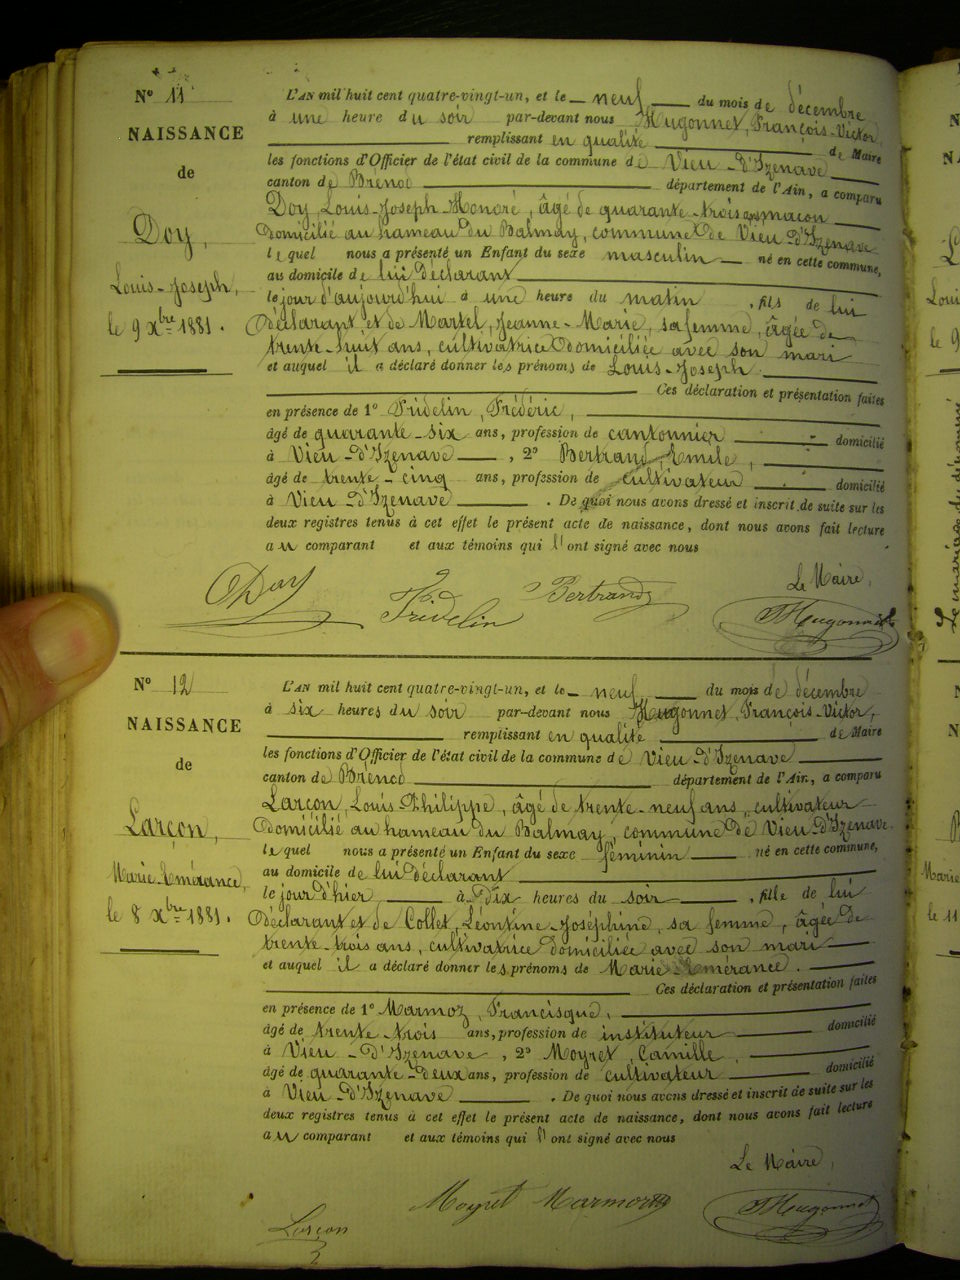 N° 11
NAISSANCE
de
Doy,
Louis-Joseph,
le 9 Xbre 1881.
L'AN mil huit cent quatre-vingt-un, et le neuf du mois de décembre
à une heure du soir par-devant nous Hugonnet, François-Victor
remplissant en qualité de Maire
les fonctions d'Officier de l'état civil de la commune de Vieu-d'Izenave
canton de Brénod département de l'Ain, a comparu
Doy, Louis-Joseph-Honoré, âgé de quarante-trois ans, maçon
domicilié au hameau du Balmay, commune de Vieu-d'Izenave
lequel nous a présenté un Enfant du sexe masculin né en cette commune,
au domicile de lui déclarant
le jour d'aujourd'hui à une heure du matin, fils de lui
déclarant et de Martel, Jeanne-Marie, sa femme, âgée de
trente-huit ans, cultivatrice domiciliée avec son mari
et auquel il a déclaré donner les prénoms de Louis-Joseph.
Ces déclaration et présentation faites
en présence de 1° Fridelin, Frédéric,
âgé de quarante-six ans, profession de cantonnier domicilié
à Vieu-d'Izenave, 2° Bertrand, Emile,
âgé de trente-cinq ans, profession de cultivateur domicilié
à Vieu-d'Izenave. De quoi nous avons dressé et inscrit de suite sur les
deux registres tenus à cet effet le présent acte de naissance, dont nous avons fait lecture
au comparant et aux témoins qui l'ont signé avec nous
Le Maire,
Doy Fridelin Bertrand Hugonnet
N° 12
NAISSANCE
de
Larçon,
Marie-Emérance,
le 8 Xbre 1881.
L'AN mil huit cent quatre-vingt-un, et le neuf du mois de décembre
à six heures du soir par-devant nous Hugonnet, François-Victor,
remplissant en qualité de Maire
les fonctions d'Officier de l'état civil de la commune de Vieu-d'Izenave
canton de Brénod département de l'Ain, a comparu
Larçon, Louis-Philippe, âgé de trente-neuf ans, cultivateur
domicilié au hameau du Balmay, commune de Vieu-d'Izenave
lequel nous a présenté un Enfant du sexe féminin né en cette commune,
au domicile de lui déclarant
le jour d'hier à dix heures du soir, fille de lui
déclarant et de Collet, Léontine-Joséphine, sa femme, âgée de
trente-trois ans, cultivatrice domiciliée avec son mari
et auquel il a déclaré donner les prénoms de Marie-Emérance.
Ces déclaration et présentation faites
en présence de 1° Marmoz, Francisque,
âgé de trente-trois ans, profession de instituteur domicilié
à Vieu-d'Izenave, 2° Moyret, Camille,
âgé de quarante-deux ans, profession de cultivateur domicilié
à Vieu-d'Izenave. De quoi nous avons dressé et inscrit de suite sur les
deux registres tenus à cet effet le présent acte de naissance, dont nous avons fait lecture
au comparant et aux témoins qui l'ont signé avec nous
Le Maire,
Larçon Moyret Marmoz Hugonnet